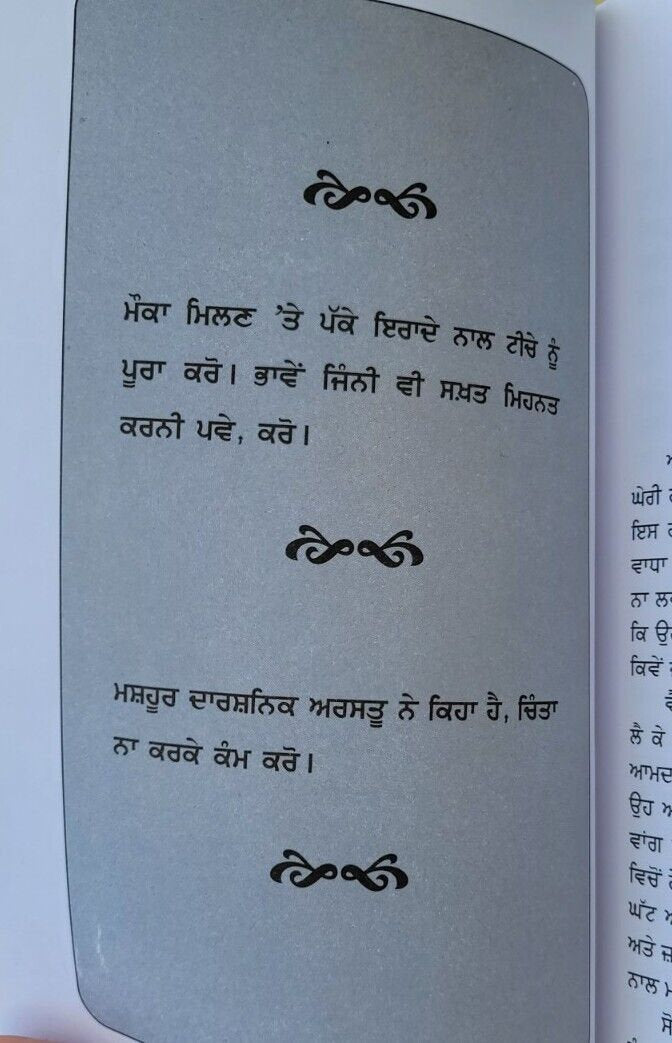 ਮੌਕਾ ਮਿਲਣ ’ਤੇ ਪੱਕੇ ਇਰਾਦੇ ਨਾਲ ਟੀਚੇ ਨੂੰ
ਪੂਰਾ ਕਰੋ। ਭਾਵੇਂ ਜਿੰਨੀ ਵੀ ਸਖ਼ਤ ਮਿਹਨਤ
ਕਰਨੀ ਪਵੇ, ਕਰੋ।
ਮਸ਼ਹੂਰ ਦਾਰਸ਼ਨਿਕ ਅਰਸਤੂ ਨੇ ਕਿਹਾ ਹੈ, ਚਿੰਤਾ
ਨਾ ਕਰਕੇ ਕੰਮ ਕਰੋ।
ਘੇਰੀ
ਇਸ
ਵਾਧਾ
ਨਾ
ਕਿ
ਕਿਵੇਂ
ਲੈ ਕੇ
ਉਹ
ਵਾਂਗ
ਵਿਚੋਂ
ਘੱਟ
ਅਤੇ
ਨਾਲ